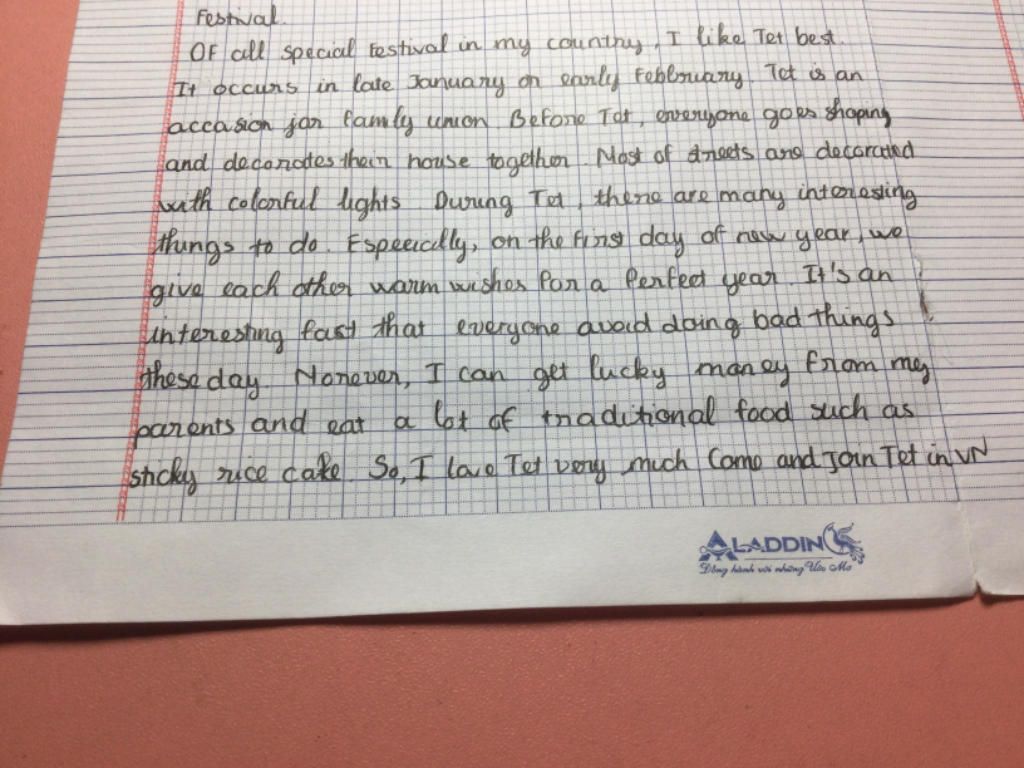 Festival.
OF all special Festival in my country, I like Tet best.
It occurs in late January or early Febbruary. Tet is an
accasion for family union. Before Tet, everyone goes shoping
and decorates their house together. Most of streets are decorated
with colorful lights. During Tet, there are many interesting
things to do. Especially, on the first day of new year, we
give each other warm wishes for a Perfect year. It's an
interesting fast that everyone avoid doing bad things
these day. Morever, I can get lucky money from my
parents and eat a lot of traditional food such as
sticky rice cake. So, I love Tet very much Come and join Tet in VN
ALADDIN
Đồng hành với những Ước Mơ